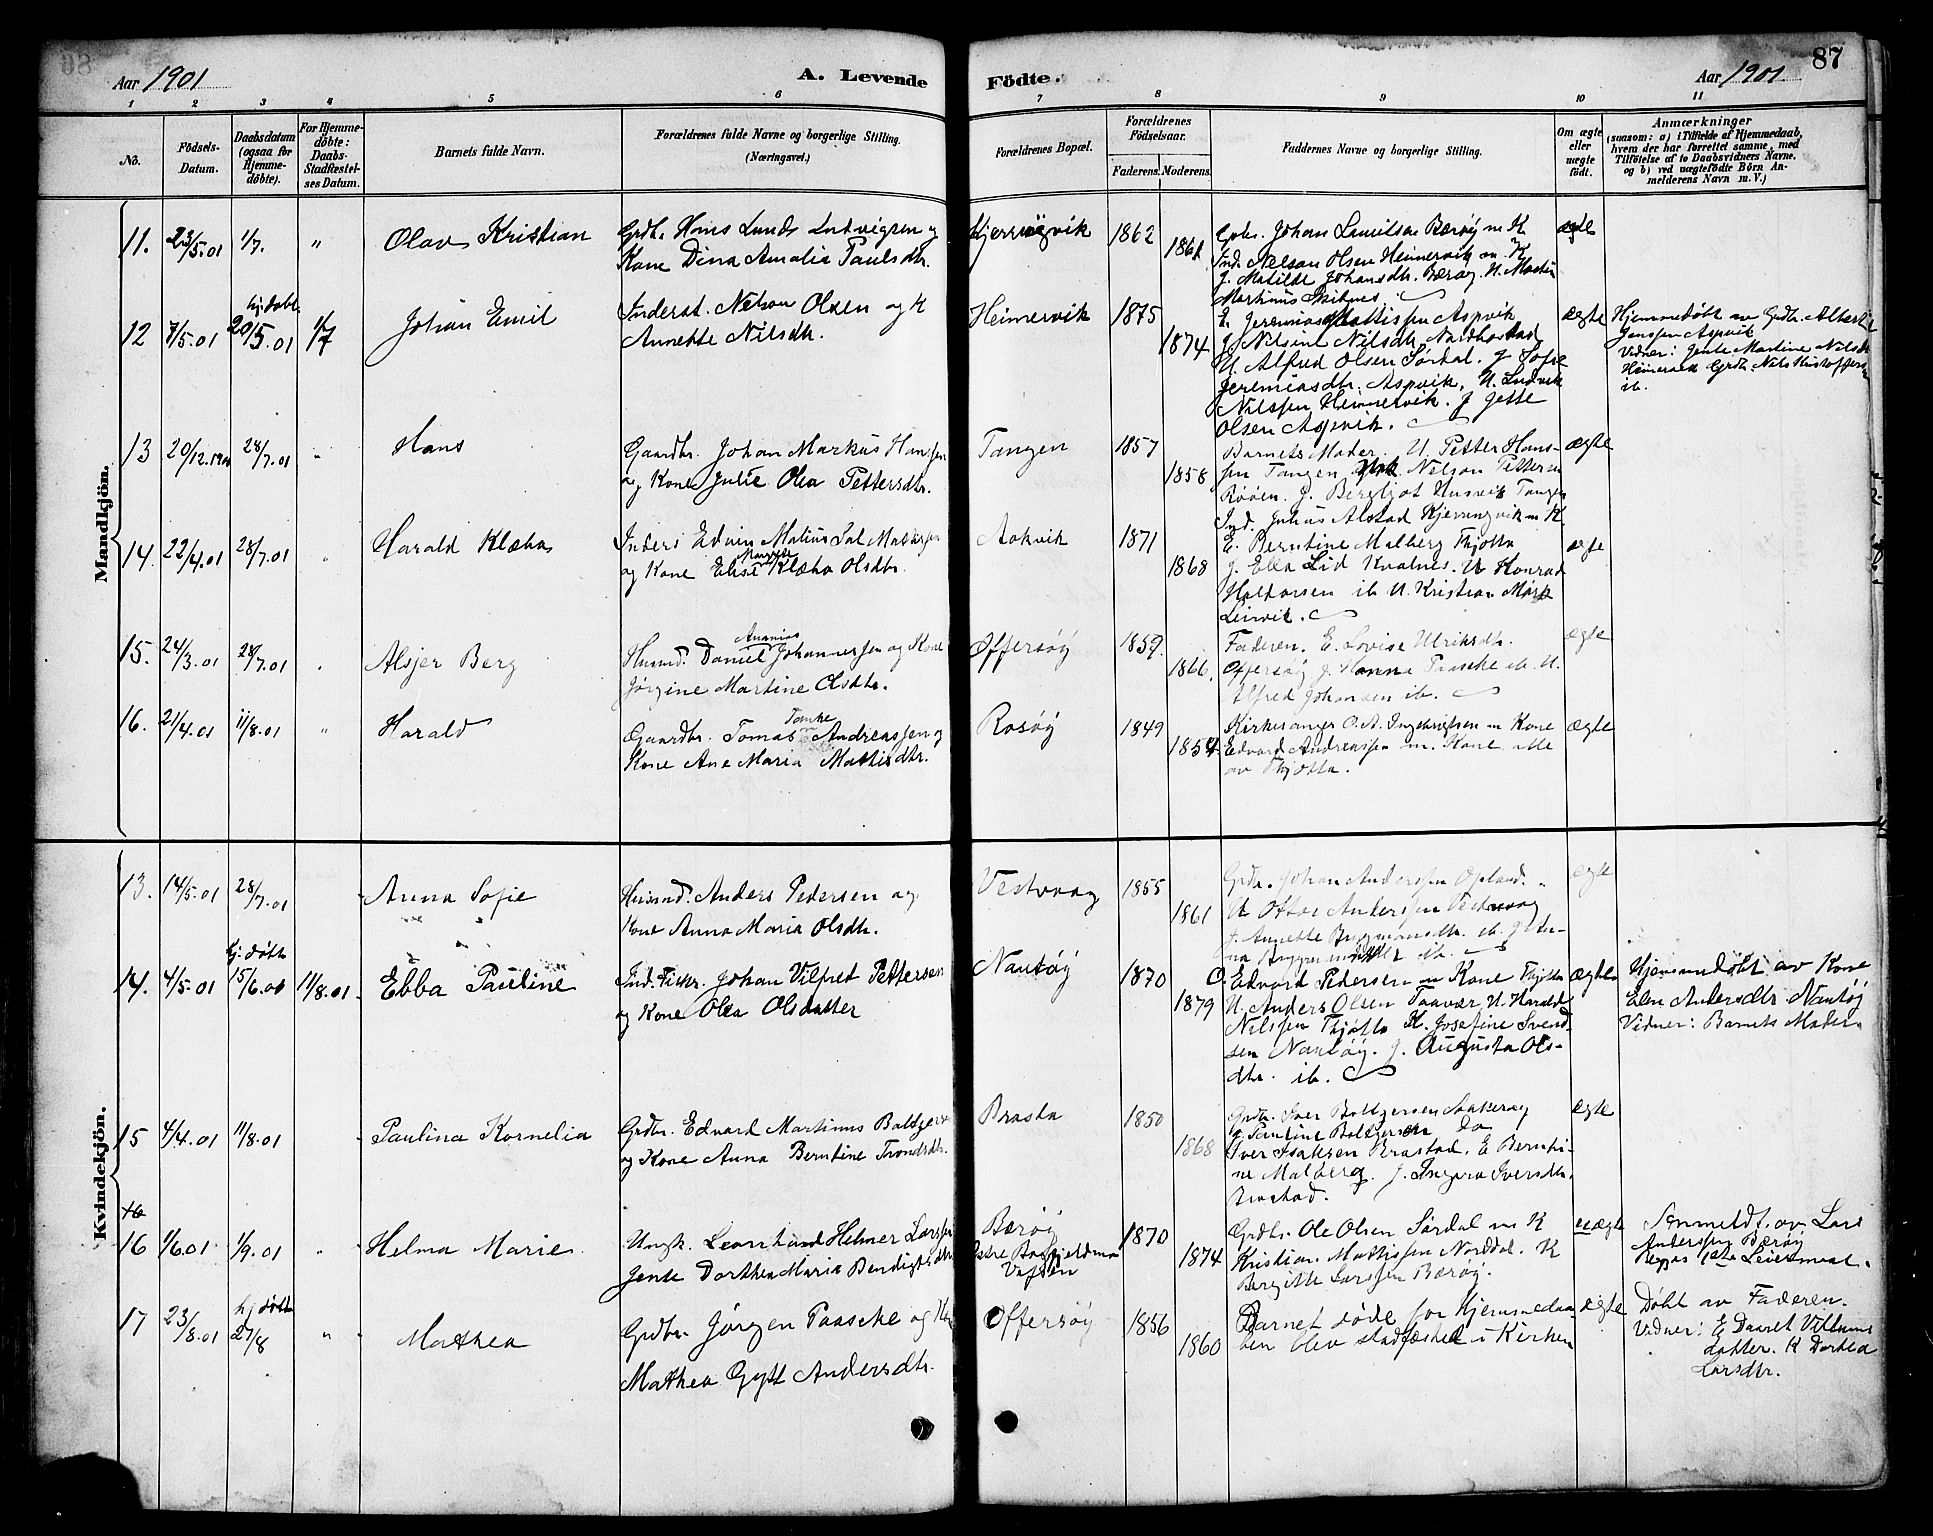 87
Aar 1901
A. Levende
Födte.
Aar 1901
1 2 3 4 5 6 7 8 9 10 11
No.
Födsels-Datum.
Daabsdatum (ogsaa for Hjemmedöbte).
For Hjemmedöbte: Daabs-Stadfæstelses Datum.
Barnets fulde Navn.
Forældrenes fulde Navne og borgerlige Stilling.
(Næringsvei.)
Forældrenes Bopæl.
Forældrenes Födselsaar.
Faderens. Moderens.
Faddernes Navne og borgerlige Stilling.
Om ægte eller uægte födt.
Anmærkninger
(saasom: a) i Tilfælde af Hjemmedaab,
hvem der har forrettet samme, med
Tilföielse af to Daabsvidners Navne,
og b) ved uægtefödte Börn An-
melderens Navn m. V.)
Mandkjön.
11. 23/5.01 1/7. " Olav Kristian
Grdb. Hans Lund Ludvigsen og
Kone Dina Amalia Paulsdtr.
Kjerringvik 1862 1861
Johan Danielsen Bærøy m K
Ind. Nelson Olsen Heimervik m. K
J. Matilde Johansdtr. Bærøy. U.
Martinus
ægte
12 7/5.01 hj.døbt 20/5.01 1/7 Johan Emil
Inderst. Nelson Olsen og K
Annette Nilsdtr.
Heimervik 1875 1874
E. Jeremias Mattissen Aspvik
J. Nilsine Nilsdtr.
U. Alfred Olsen Sørdal. J Sofie
Jeremiasdtr. Aspvik. U. Ludvik
Nilssen Heimervik. J Jette
Olsen Aspvik.
ægte
Hjemmedøbt av Grdb. Albert
Jenssen Aspvik
Vidner: Jente Martine Nilsdt
Heimervik Grdb. Nils Kristoffersen
ib.
13 20/12.1900 28/7.01 " Hans
Gaardbr. Johan Markus Hanssen
og Kone Julie Olea Pettersdtr.
Tangen 1857 1858
Barnets Moder. U. Petter Hans-
sen Tangen Nelson Petter
J. Bergljot Husvik Tangen
Ind. Julius Alstad Kjerringvik m K
ægte
14. 22/4.01 28/7.01 " Harald Klæbo
Inders Edvin Matius Sal
og Kone Elise Margrete Klæbo Olsdtr.
Aakvik 1871 1868
E. Berntine Malberg Thjøtta
J. Ella Lid Kvalnes. U Konrad
Haldorsen ib U. Kristian Mørk
Leirvik.
ægte
15. 24/3.01 28/7.01 " Alsjer Berg
Husmd. Daniel Ananias Johannessen og Kone
Jørgine Martine Olsdtr.
Offersøy 1859. 1866.
Faderen. E. Lovise Ulriksdtr.
Offersøy J. Hanna Paasche ib. U.
Alfred Johansen ib.
ægte
16. 21/4.01 11/8.01 " Harald
Gaardbr. Tomas Tanke Andreassen og
Kone Ane Maria Mathisdtr.
Rosøy 1849 1854
Kirkesanger O. A. Ingebrigtsen m Kone
Edvard Andreassen m. Kone alle
av Thjøtta.
ægte
Kvindekjön.
13. 14/5.01 28/7.01 Anna Sofie
Husmd. Anders Pedersen og
Kone Anna Maria Olsdtr.
Vestvaag 1855 1861
Grdr. Johan Anderssen Opland.
U Ottar Anderssen Vestvaag
J. Annette Brygmansdtr. ib. J An-
na ib
ægte
14. 4/5.01 hj. døbt 15/6.01 11/8.01. Ebba Pauline
Ind. Fisker. Johan Vilfret Pettersen
og Kone Olea Olsdatter
Nautøy 1870 1879
O. Edvard Pedersen m Kone Thjøtta
U. Anders Olsen Taavær U. Harald
Nilssen Thjøtta K. Josefine Svend-
sen Nautøy. J. Augusta Ols-
dtr. ib.
ægte
Hjemmedøbt av Kone
Elen Andersdtr Nautøy
Vidner: Barnets Moder
15 4/4.01 11/8.01 Paulina Kornelia
Grdbr. Edvard Martinus
og Kone Anna Berntine Trondsdtr.
Brasta 1850 1868
Grdb. Iver
do
Iver Isaksen Brastad. E Bernti-
ne Malberg. J. Iversdtr.
Brastad.
ægte
16
16 1/6.01 1/9.01 " Helma Marie
Ungk. Leonhard Helmer Larssen
Jente Dorthea Maria Bendigtsdtr
Bærøy
Vefsen
1870 1874
Grdb. Ole Olsen Sørdal m K
Kristian Mathissen Norddal. K
Bergitte Larssen Bærøy.
uægte
Anmeldt av Lars
Anderssen Bærøy
Begges 1ste Leiermaal.
17 23/8.01 hj døbt 27/8 " Mathea
Grdbr. Jørgen Paasche og
Mathea Gytt Andersdtr.
Offersøy 1856 1860
Barnet døde før Hjemmedaa-
ben blev stadfæstet i Kirken
ægte
Døbt av Faderen.
Vidner: E Daaret Villums
datter. K Dorthea
Larsdtr.